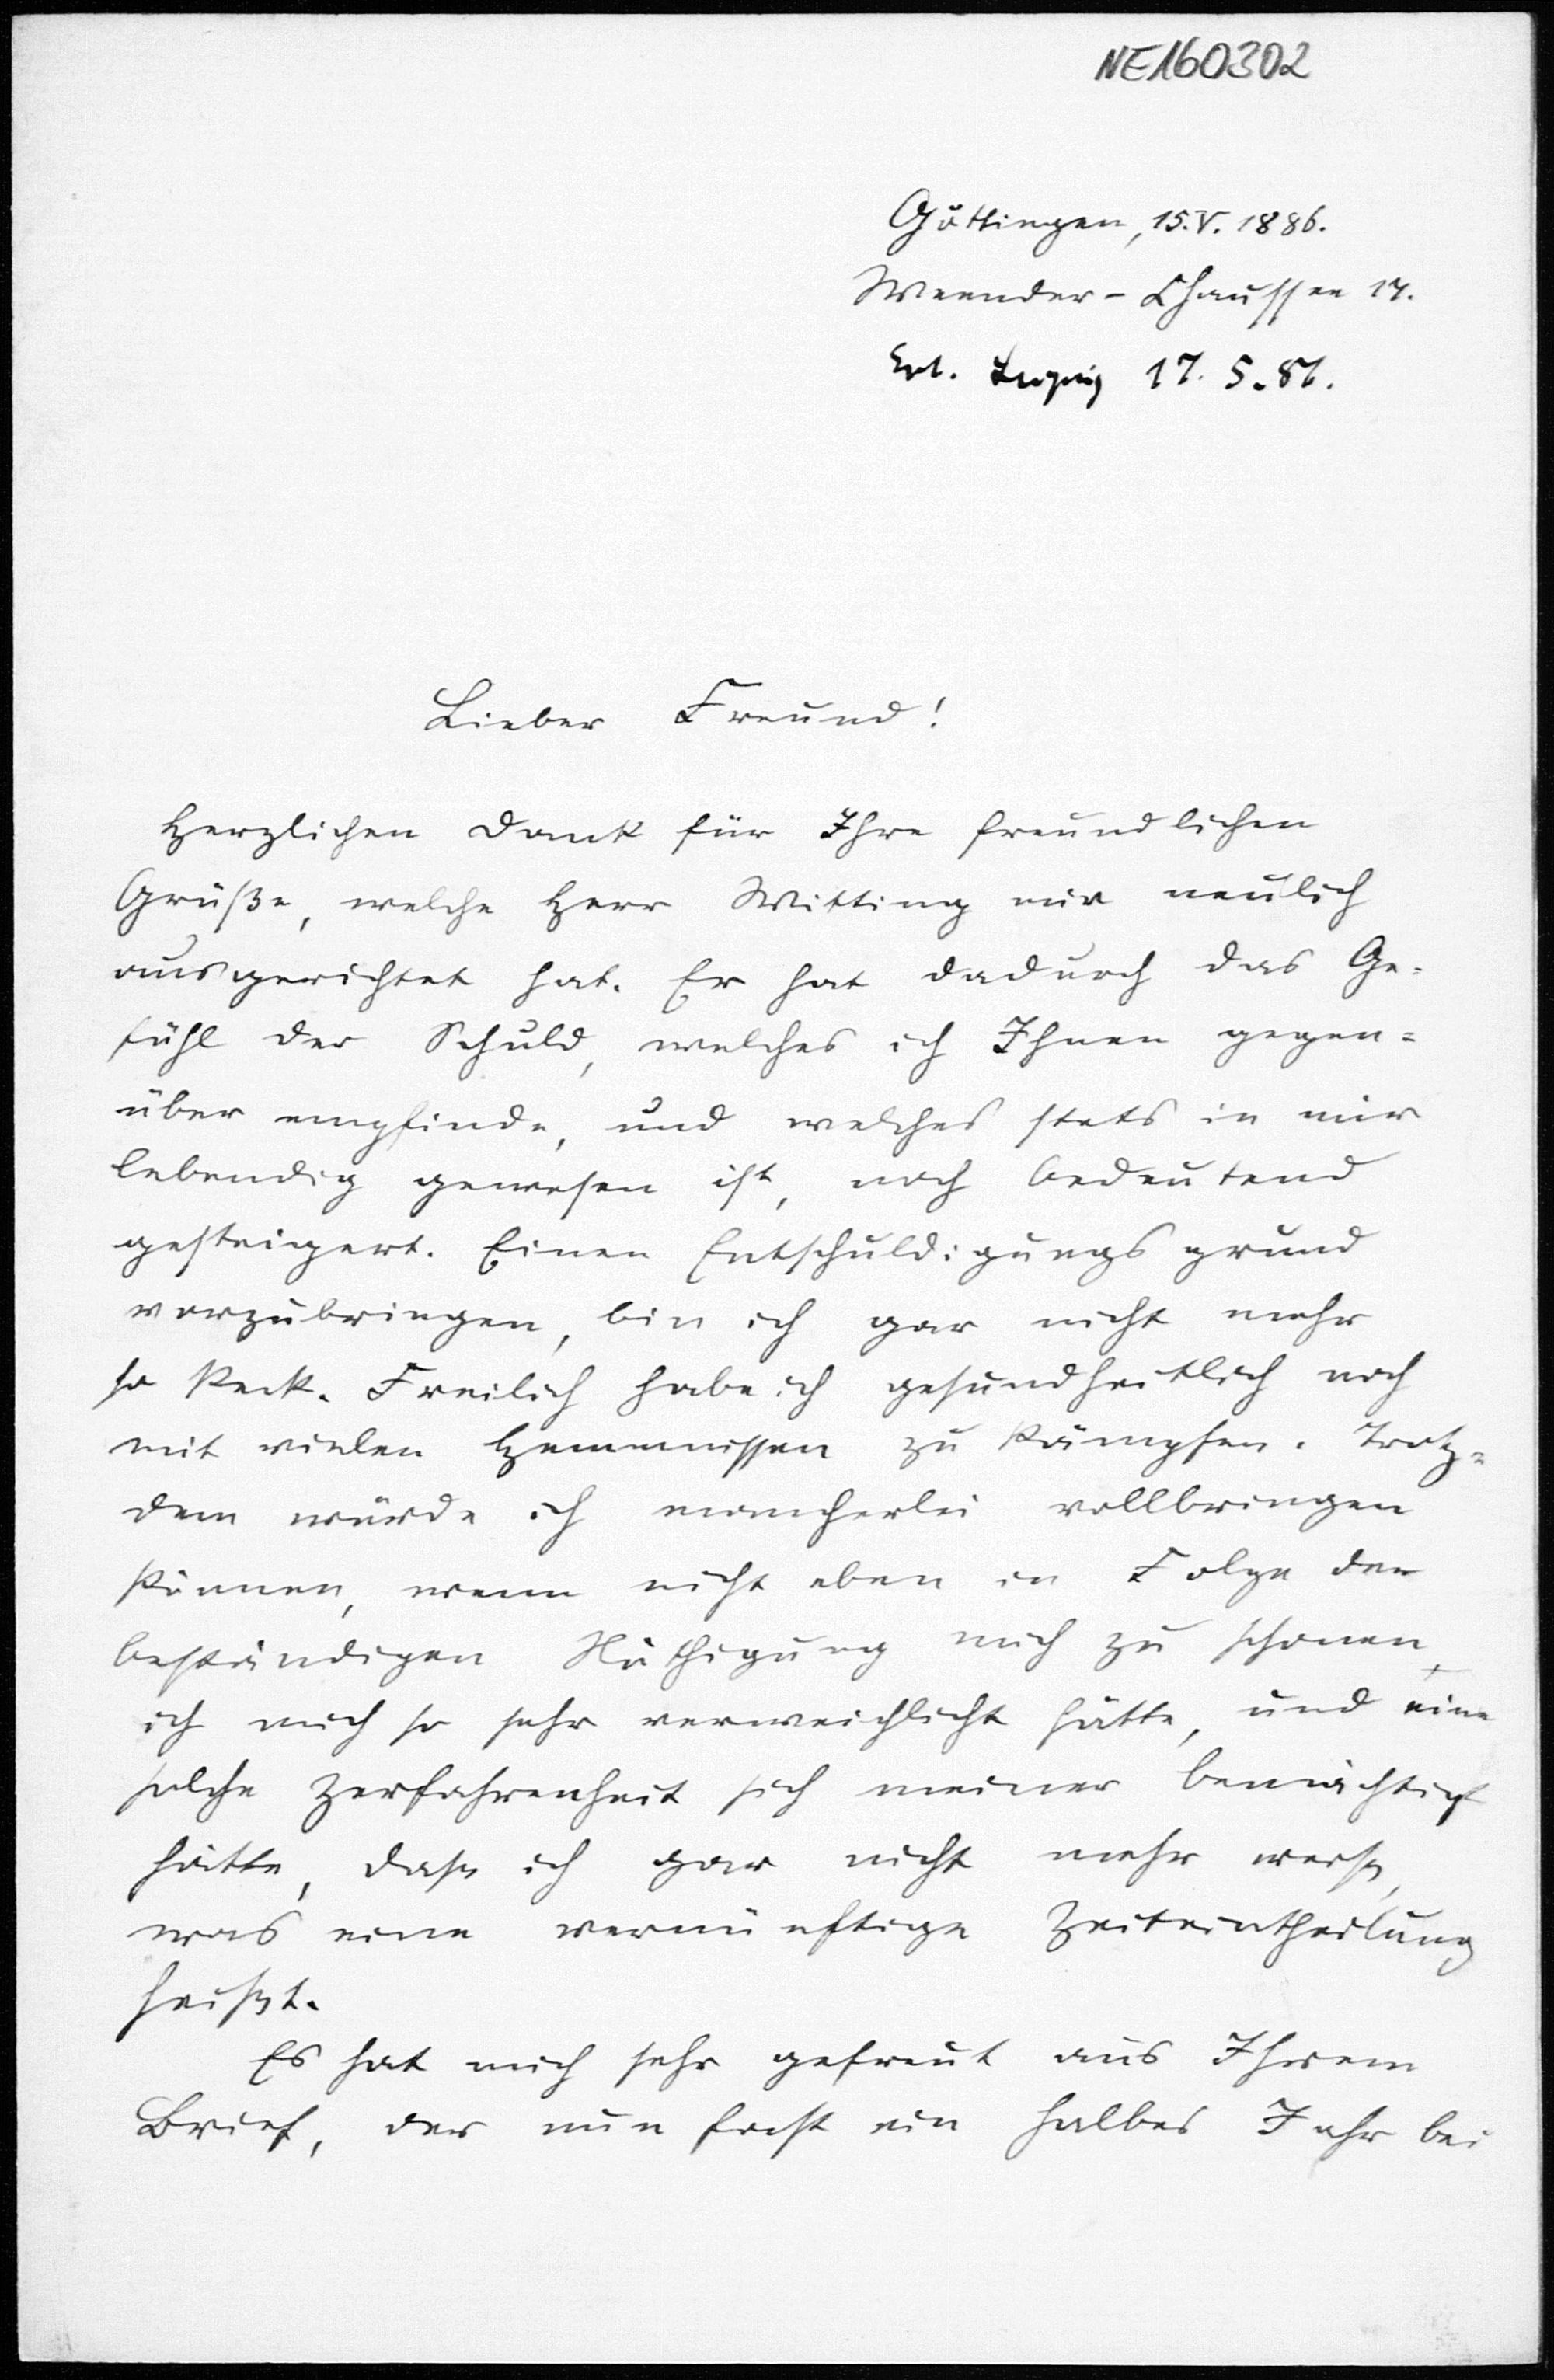 NE160302
Göttingen, 15.V. 1886.
Weender-Chaussee 17.
Erh. Leipzig 17. 5. 86.
Lieber Freund!
Herzlichen Dank für Ihre freundlichen
Grüße, welche Herr Witting mir neulich
ausgerichtet hat. Er hat dadurch das Ge-
fühl der Schuld, welches ich Ihnen gegen-
über empfinde, und welches stets in mir
lebendig gewesen ist, noch bedeutend
gesteigert. Einen Entschuldigungsgrund
vorzubringen, bin ich gar nicht mehr
so keck. Freilich habe ich gesundheitlich noch
mit vielen Hemmnissen zu kämpfen. Trotz-
dem würde ich mancherlei vollbringen
können, wenn nicht eben in Folge der
beständigen Nöthigung mich zu schonen,
ich mich so sehr verweichlicht hätte, und eine
solche Zerfahrenheit sich meiner bemächtigt
hätte, dass ich gar nicht mehr weiss,
was eine vernünftige Zeiteintheilung
heisst.
Es hat mich sehr gefreut aus Ihrem
Brief, der nun fast ein halbes Jahr bei